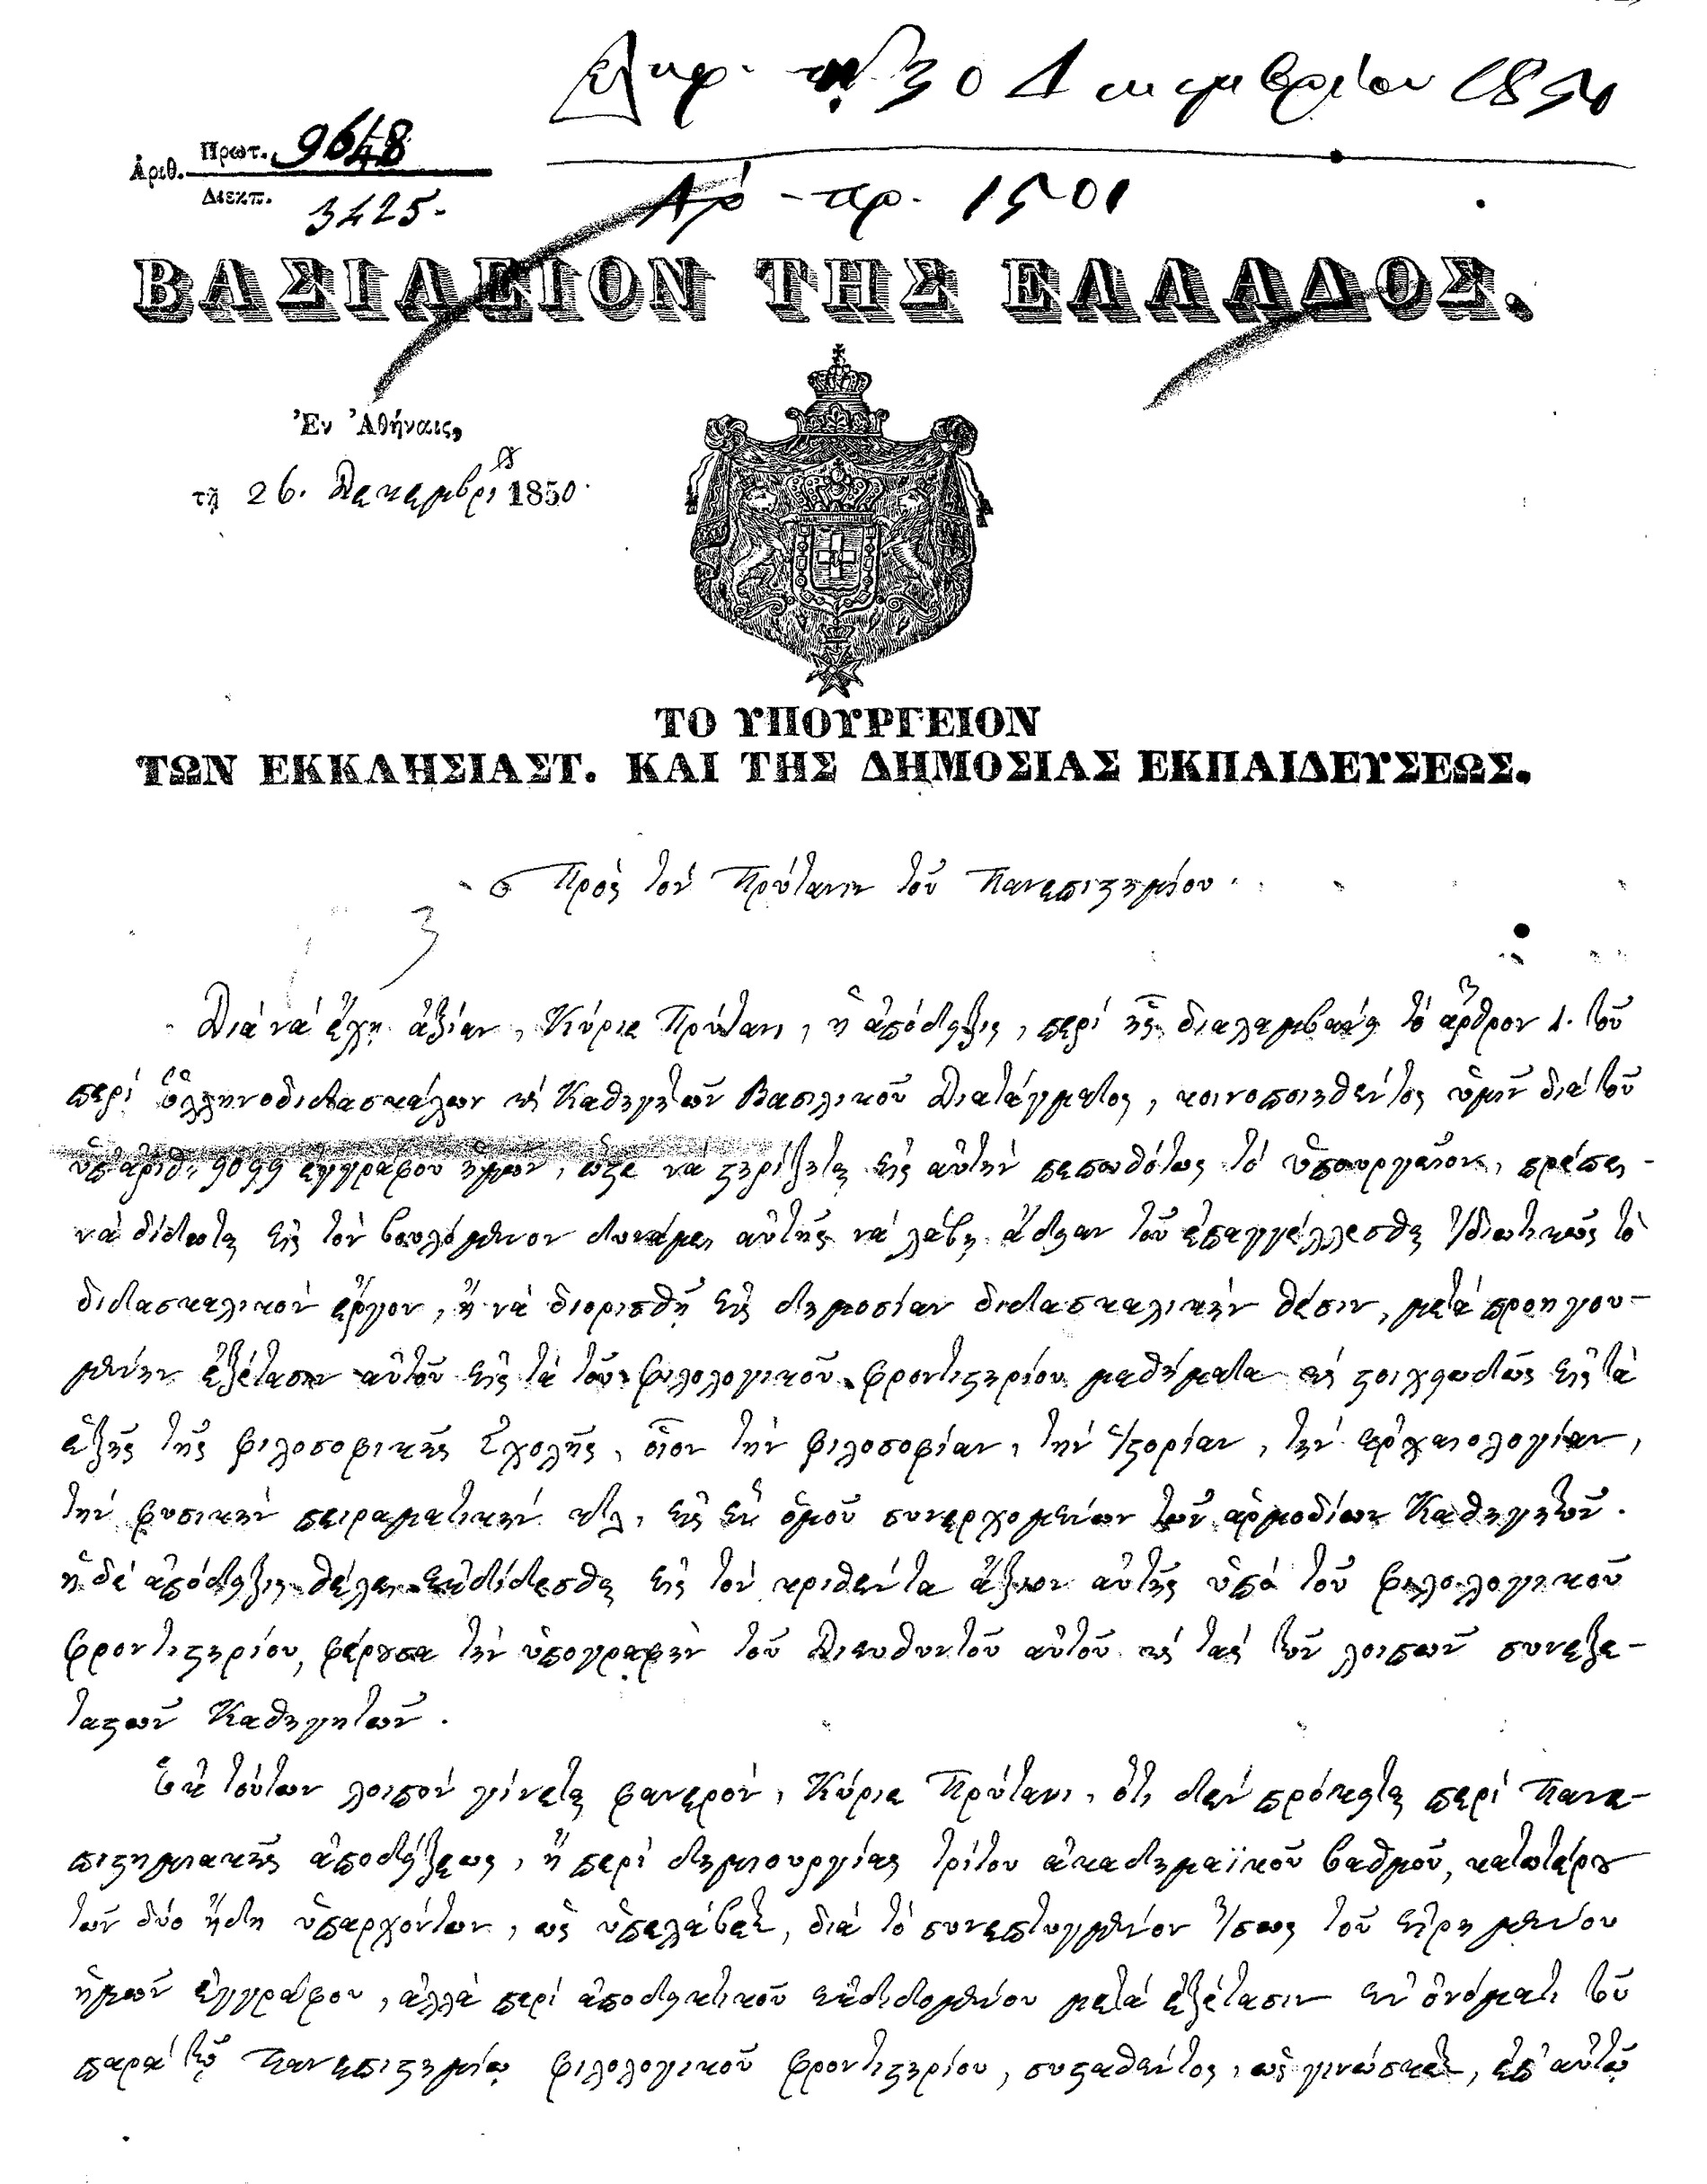 Ἐλήφ. τῇ 30 Δεκεμβρίου 1850
Ἀριθ. Πρωτ. 9648
Διεκπ. 3425.
Ἀρ. πρ. 1501
ΒΑΣΙΛΕΙΟΝ ΤΗΣ ΕΛΛΑΔΟΣ.
Ἐν Ἀθήναις,
τῇ 26. Δεκεμβρίου 1850.
ΤΟ ΥΠΟΥΡΓΕΙΟΝ
ΤΩΝ ΕΚΚΛΗΣΙΑΣΤ. ΚΑΙ ΤΗΣ ΔΗΜΟΣΙΑΣ ΕΚΠΑΙΔΕΥΣΕΩΣ.
Πρὸς τὸν Πρύτανιν τοῦ Πανεπιστημίου.
Διὰ νὰ ἔχῃ ἀξίαν, Κύριε Πρύτανι, ἡ ἀπόδειξις, περὶ ἧς διαλαμβάνει τὸ ἄρθρον 1. τοῦ
περὶ ἑλληνοδιδασκάλων καὶ Καθηγητῶν Βασιλικοῦ Διατάγματος, κοινοποιηθέντος ὑμῖν διὰ τοῦ
ὑπ' ἀριθ. 9099 ἐγγράφου ἡμῶν, ὥστε νὰ στηρίζεται εἰς αὐτὴν πεποιθότως τὸ ὑπουργεῖον, πρέπει
νὰ δίδεται εἰς τὸν βουλόμενον δυνάμει αὐτῆς νὰ λάβῃ ἄδειαν τοῦ ἐπαγγέλλεσθαι ἰδιωτικῶς τὸ
διδασκαλικὸν ἔργον, ἢ νὰ διορισθῇ εἰς δημοσίαν διδασκαλικὴν θέσιν, μετὰ προηγου-
μένην ἐξέτασιν αὐτοῦ εἰς τὰ τοῦ φιλολογικοῦ φροντιστηρίου μαθήματα καὶ στοιχειωδῶς εἰς τὰ
ἑξῆς τῆς φιλοσοφικῆς Σχολῆς, οἷον τὴν φιλοσοφίαν, τὴν ἱστορίαν, τὴν ἀρχαιολογίαν,
τὴν φυσικὴν πειραματικὴν κτλ, εἰς ἓν ὁμοῦ συνερχομένων τῶν ἁρμοδίων Καθηγητῶν.
ἡ δὲ ἀπόδειξις θέλει ἐκδίδεσθαι εἰς τὸν κριθέντα ἄξιον αὐτῆς ὑπὸ τοῦ φιλολογικοῦ
φροντιστηρίου, φέρουσα τὴν ὑπογραφὴν τοῦ Διευθυντοῦ αὐτοῦ καὶ τὰς τῶν λοιπῶν συνεξε-
ταστῶν Καθηγητῶν.
Ἐκ τούτων λοιπὸν γίνεται φανερὸν, Κύριε Πρύτανι, ὅτι δὲν πρόκειται περὶ Πανε-
πιστημιακῆς ἀποδείξεως, ἢ περὶ δημιουργίας τρίτου ἀκαδημαϊκοῦ βαθμοῦ, κατωτέρου
τῶν δύο ἤδη ὑπαρχόντων, ὡς ὑπελάβετε, διὰ τὸ συνεπτυγμένον ἴσως τοῦ εἰρημένου
ἡμῶν ἐγγράφου, ἀλλὰ περὶ ἀποδεικτικοῦ ἐκδιδομένου μετὰ ἐξέτασιν ἐν ὀνόματι τοῦ
παρὰ τῷ Πανεπιστημίῳ φιλολογικοῦ φροντιστηρίου, συσταθέντος, ὡς γινώσκετε, ἐπ' αὐτῷ